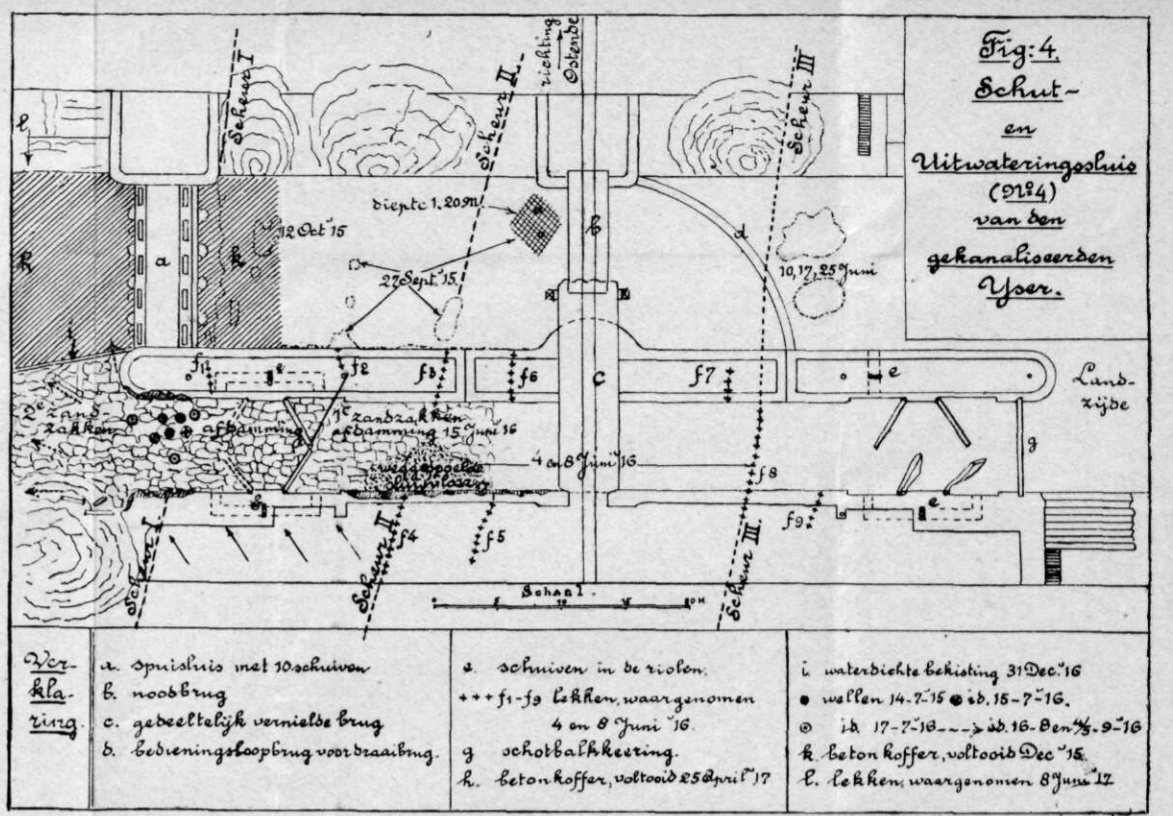 Fig: 4.
Schut-
en
Uitwateringssluis
(No 4)
van den
gekanaliseerden
Yser.
Scheur I
Scheur II
richting
Ostende
Scheur III
l
diepte 1.20 M
12 Oct '15
b
d
k
a
k
27 Sept. '15.
10, 17, 25 Juni
f1
e
f2
f3
f6
c
f7
e
Land-
zijde
2e zand-
zakken
afdamming
1e zandzakken
afdamming 15 Juni '16
g
weggespoelde
4 en 8 Juni '16
f8
e
f9
e
f4
f5
Scheur I
Scheur II
Scheur III.
Schaal.
Ver-
kla-
ring.
a. spuisluis met 10 schuiven
b. noodbrug
c. gedeeltelijk vernielde brug
d. bedieningsloopbrug voor draaibrug.
e. schuiven in de riolen.
+++ f1-f9 lekken, waargenomen
4 en 8 Juni '16.
g schotbalkkeering.
h. betonkoffer, voltooid 25 April '17
i. waterdichte bekisting 31 Dec. '16
wellen 14-7-'15 id. 15-7-'16.
id. 17-7-'16 ----> id. 16-8 en 9-'16
k. betonkoffer, voltooid Dec '15
l. lekken, waargenomen 8 Juni '17